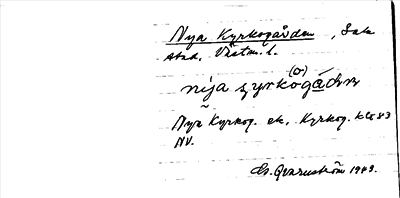 Nya Kyrkogården, Sala
stad, Västm. l.
nỹja çyrkogǻdɳ
(o)
Nya Kyrkog. ek. Kyrkog. kls 83
NV.
G. Qvarnström 1943.